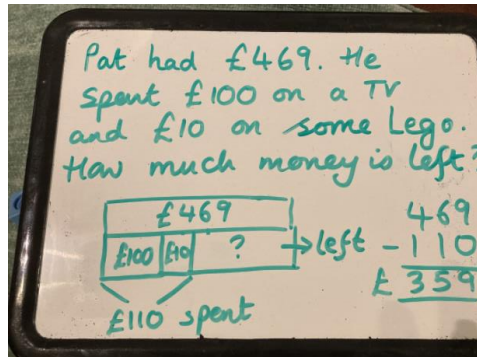 Pat had £469. He
spent £100 on a TV
and £10 on some Lego.
How much money is left?
£469
£100 £10 ? → left
£110 spent
469
- 110
£ 359